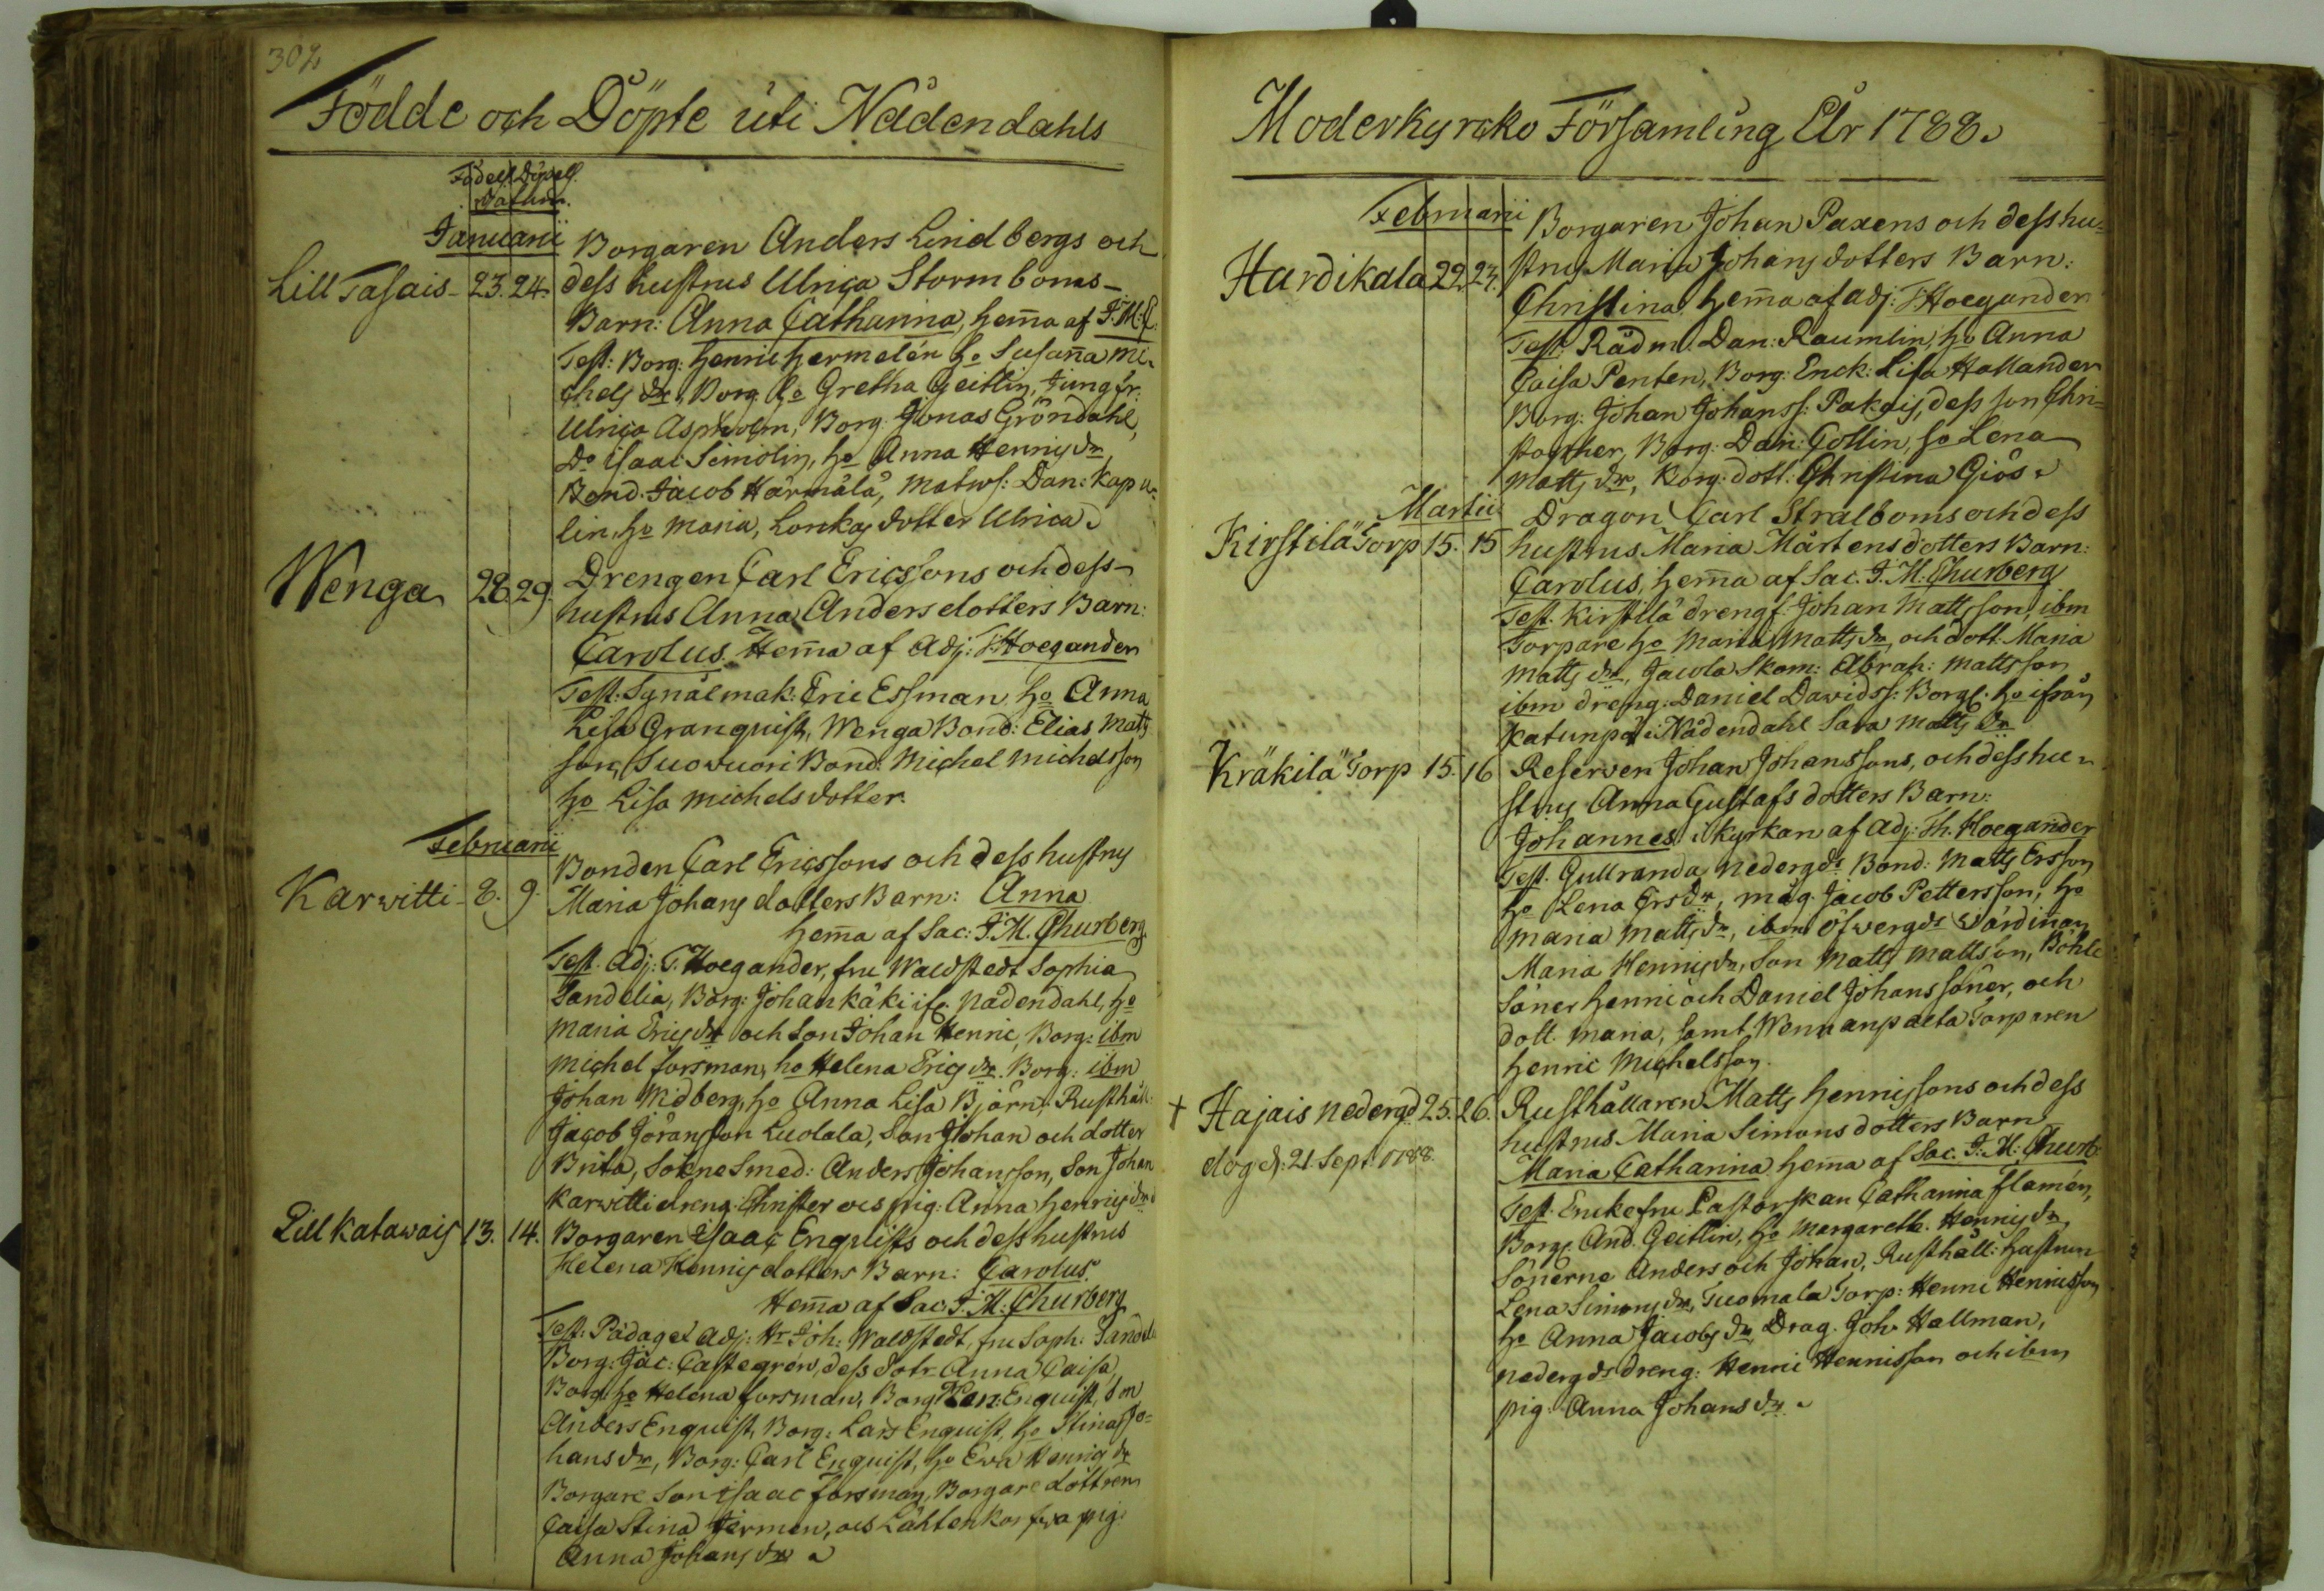 302
Födde och Döpte uti Nådendahls
Födels. Döpels.
Datum.
Januarii
Borgaren Anders Lindbergs och
Lill Tasais - 23. 24. dess hustrus Ulrica Stormboms
Barn: Anna Catharina, hema af J. M. C.
Test: Borg: Henric Hermelén ho Susana Mi-
chels dr, Borg. ho Gretha Geitlin, Jungfr:
Ulrica Aspholm, Borg. Jonas Gröndahl,
Do Isaac Simolin, ho Anna Henrics dr,
Bond. Jacob Härmälä, Dan: Kape-
lin, ho Maria, dotter Ulrica.
Wenga 28. 29. Drengen Carl Ericssons och dess
hustrus Anna Andersdotters Barn:
Carolus. Hema af Adj: T. Hoegander
Test. Synålmak: Eric Essman ho Anna
Lisa Granquist, Wenga Bond: Elias Matts
son, Suovuori Bond. Michel Michelsson
ho Lisa Michelsdotter.
Februarii
Bonden Carl Ericssons och dess hustrus
Karwitti - 8. 9. Maria Johansdotters Barn: Anna
hema af Sac: J. M. Churberg.
Test. Adj: T. Hoegander, fru Waldstedt Sophia
Sandelia, Borg: Johan Käki ifr. Nådendahl, ho
Maria Erics dr och Son Johan Henric, Borg: ibm
Michel Forsman, ho Helena Erics dr. Borg: ibm
Johan Widberg, ho Anna Lisa Björn, Rusthåll.
Jacob Jöransson Luolala, Son Johan och dotter
Brita, Sokne Smed: Anders Johansson, Son Johan
Karwitti dreng: Christer ocs pig: Anna Henrics dr
Lill Katawais 13. 14. Borgaren Isaac Enqvists och dess hustrus
Helena Henricsdotters Barn: Carolus.
Hema af Sac. J. M. Churberg
Test: Pädag. et Adj: Hr Joh: Waldstedt, fru Soph: Sandelia
Borg: Jac: Castegrén, dess dotr Anna Caisa,
Borg. ho Helena Forsman, Borg. Enquist, Son
Anders Enquist, Borg: Lars Enquist, ho Stina Jo-
hans dr, Borg: Carl Enquist, ho Ewa Henrics dr
Borgare Son Isaac Forsman, Borgare dottren
Caisa Stina, ocs Lähtenkorfwa pig.
Anna Johans dr.
Moderkyrcko Församling År 1788.
Februarii Borgaren Johan Paxens och dess hu-
Hardikala 22. 23. strus Maria Johansdotters Barn:
Christina hema af Adj: T. Hoegander
Test. Rådm. Dan: Raumlin, ho Anna
Caisa Penten, Borg: Enck: Lisa Hallander
Borg: Johan Johanss: Pakais, dess son Chri-
stopher, Borg: Dan: Gottlin, ho Lena
Matts dr, Borg: dott: Christina Giös.
Martii Dragon Carl Strålboms och dess
Kirstilä Torp 15. 15 hustrus Maria Mårtensdotters Barn:
Carolus, hema af Sac. J. M. Churberg
Test. Kirstilä drengs: Johan Mattsson, ibm
Torpare ho Maria Matts dr, och dott Maria
Matts dr, Jacola Skom: Abrah: Mattsson
ibm dreng: Daniel Dawidss: Borg: ho ifrån
Katunpä i Nådendahl Sara Matts dr
Kräkilä Torp 15. 16 Reserven Johan Johanssons, och dess hu-
strus Anna Gustafsdotters Barn:
Johannes i kyrkan af Adj: Th. Hoegander
Test. Gullranda, Nedergds Bond: Matts Ersson
ho Lena Ers dr, måg. Jacob Pettersson, ho
Maria Matts dr, ibm Öfwergds Wärdinan
Maria Henrics dr, Son Matts Mattsson, Böhle
Söner Henric och Daniel Johanssöner, och
dott. Maria, samt Torparen
Henric Michelsson.
† Hajais nedergd. 25. 26. Rusthållaren Matts Henricssons och dess
död d: 21 Sept 1788. hustrus Maria Simonsdotters Barn
Maria Catharina hema af Sac. J. M: Churb:
Test. Enckefru Pastorskan Catharina Flamén,
Borg. And. Geitlin, ho Margareth. Henrics dr
Sönerne Anders och Johan, Rusthåll: hustrun
Lena Simons dr, Tuomala Torp: Henric Henricsson
ho Anna Jacobs dr, Drag. Joh. Hallman,
nedergds dreng: Henric Henricsson och ibm
pig: Anna Johans dr.